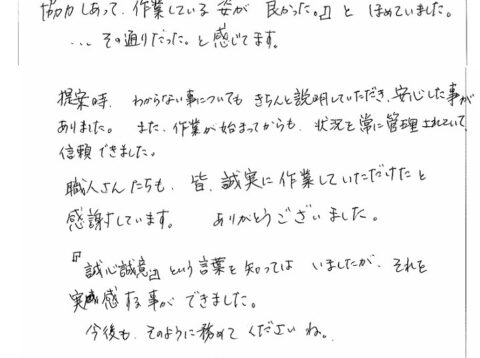 協力しあって、作業している姿が良かった。』と ほめていました。
…その通りだった。と感じてます。
提案時、わからない事についても きちんと説明していただき、安心した事が
ありました。 また、作業が始まってからも、状況を常に管理されていて
信頼できました。
職人さんたちも、皆、誠実に作業していただけたと
感謝しています。 ありがとうございました。
『誠心誠意』という言葉を知っては いましたが、それを
実感する事ができました。
今後も、そのように務めてくださいね。